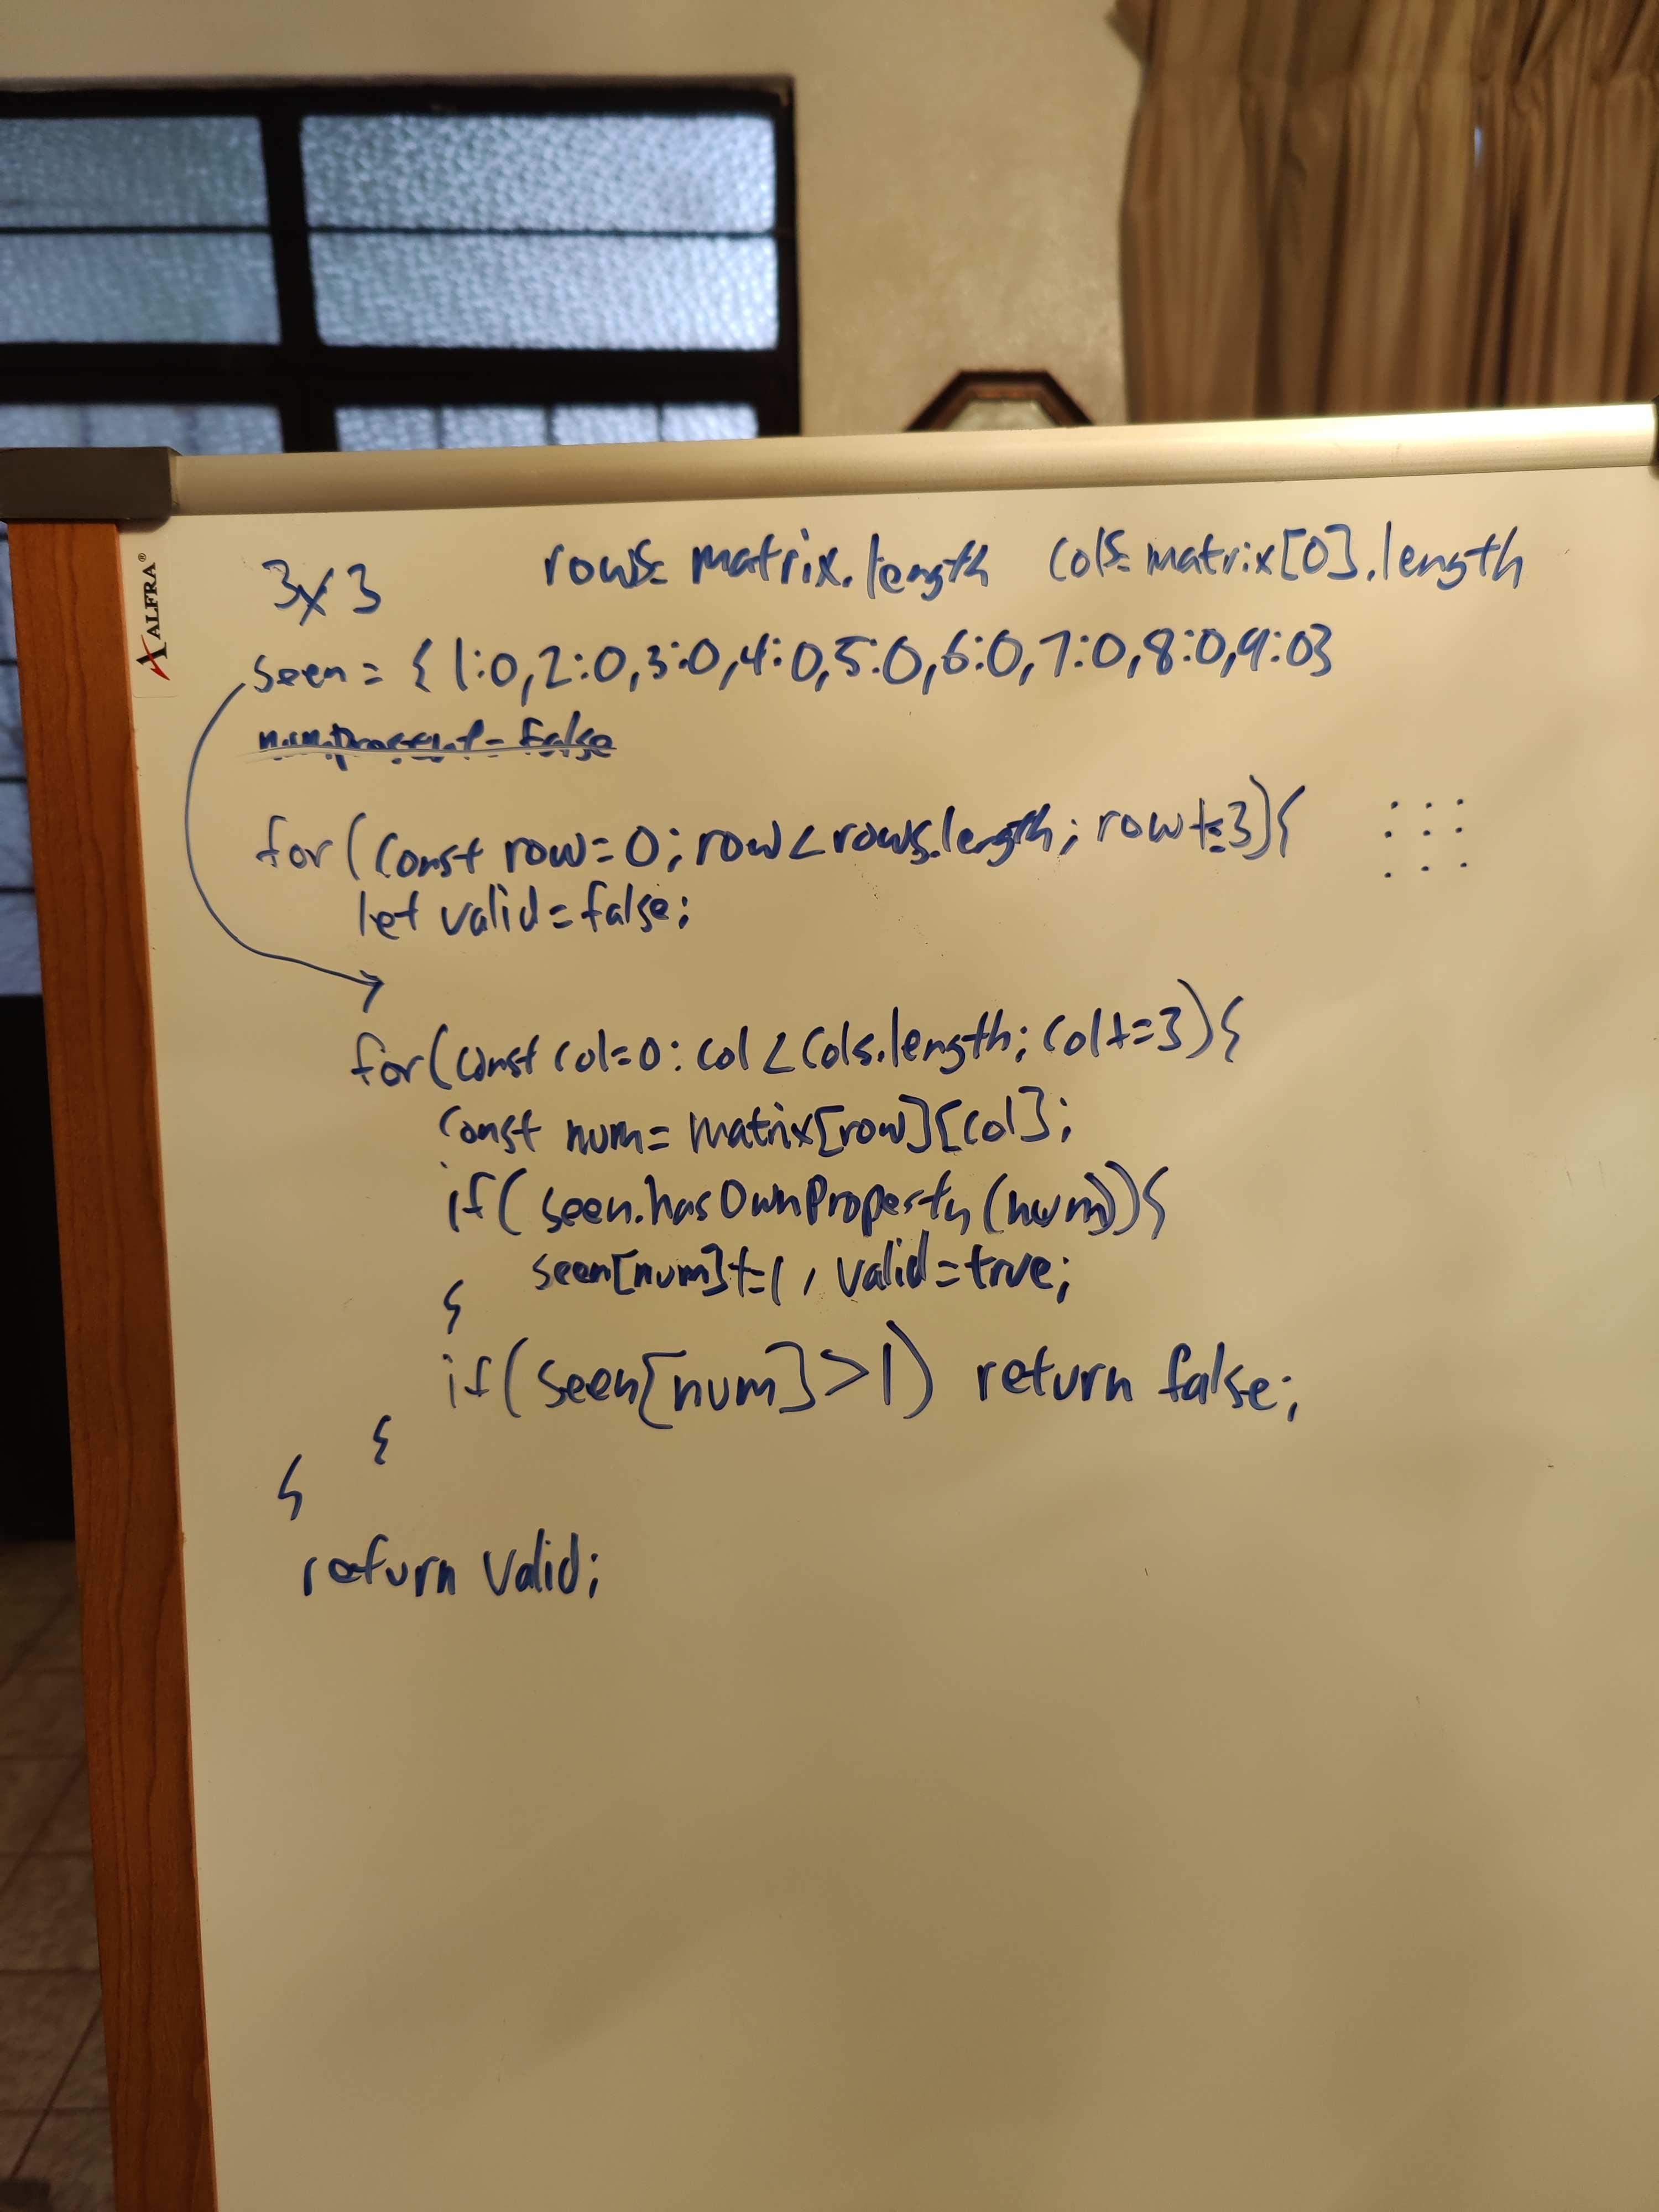 ALFRA®
3x3 rows= matrix.length cols= matrix[0].length
seen = {1:0,2:0,3:0,4:0,5:0,6:0,7:0,8:0,9:0}
numpresent = false
for(const row=0; row<rows.length; row+=3){
let valid=false;
for(const col=0: col<cols.length; col+=3){
const num= matrix[row][col];
if(seen.hasOwnProperty(num)){
seen[num]+=1, valid=true;
}
if(seen[num]>1) return false;
}
}
return valid;